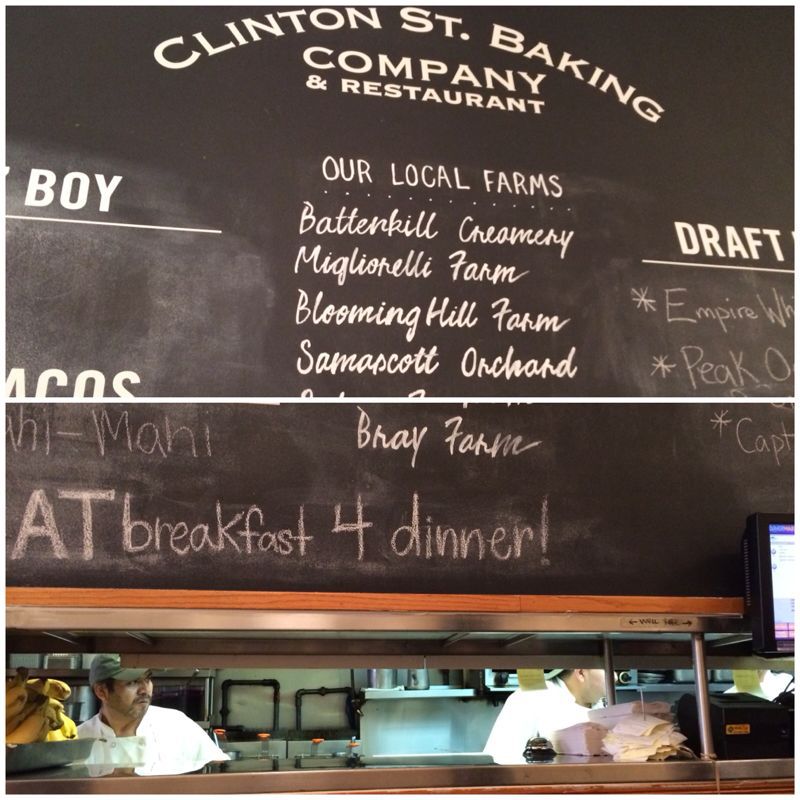 CLINTON ST. BAKING
COMPANY
& RESTAURANT
OUR LOCAL FARMS
BOY
Battenkill Creamery
Migliorelli Farm
Blooming Hill Farm
Samascott Orchard
DRAFT
* Empire Whi
* Peak O
ACOS
ahi-Mahi
Bray Farm
* Capt
AT breakfast 4 dinner!